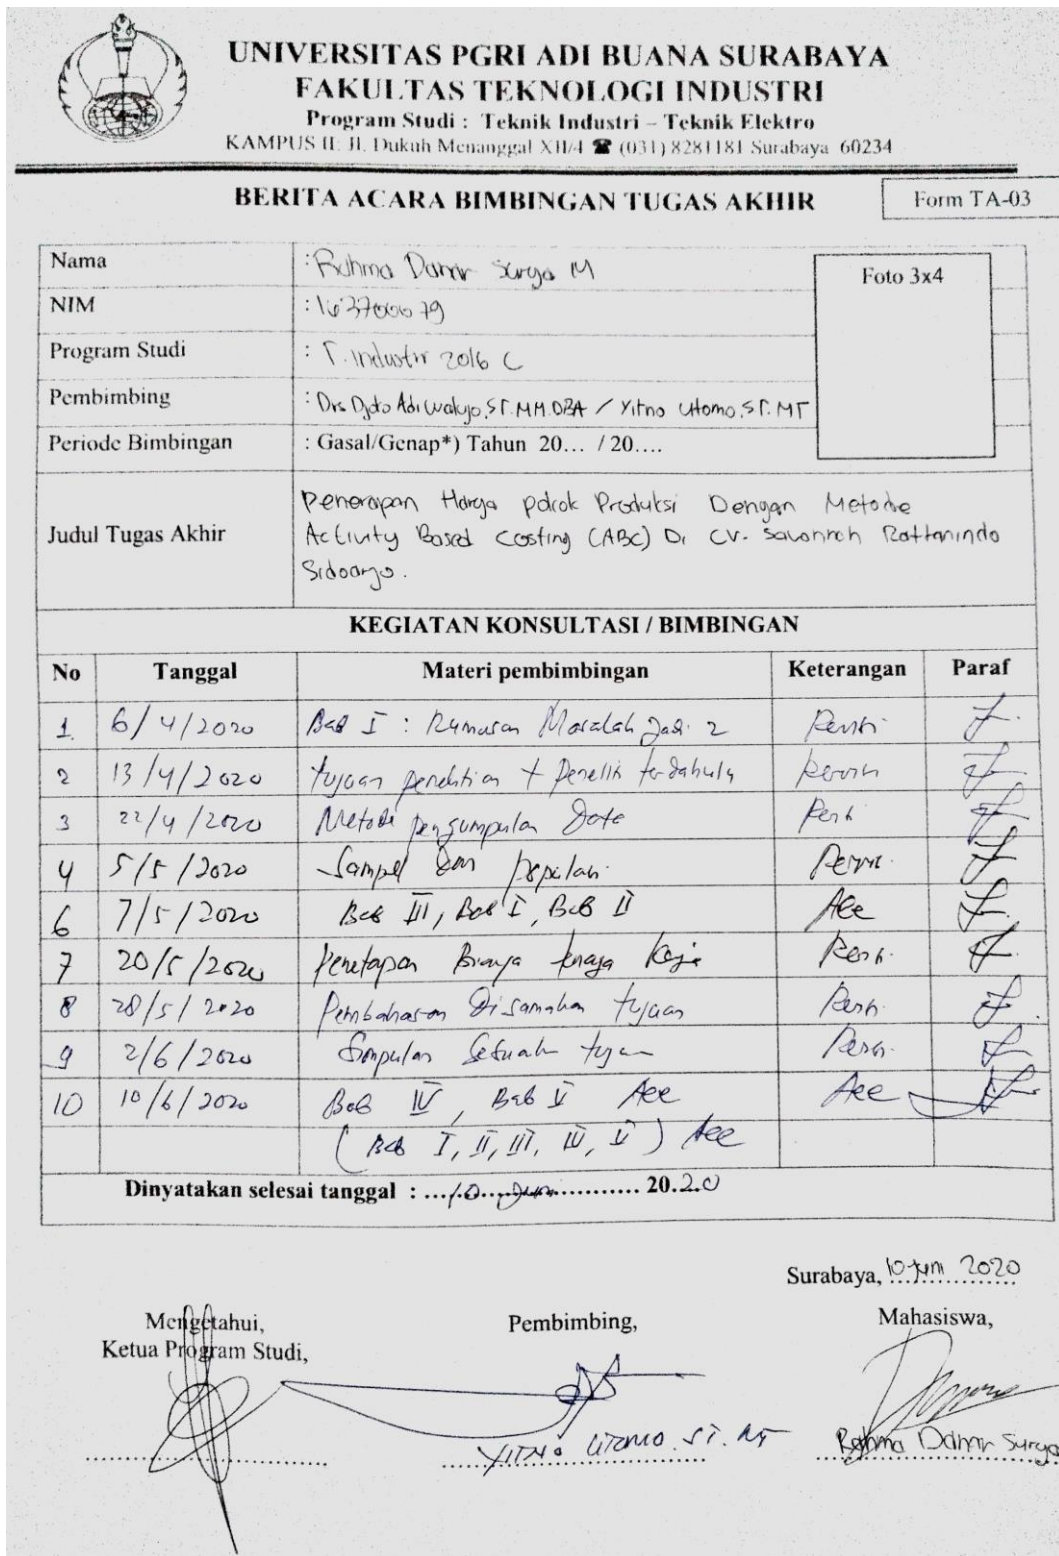 UNIVERSITAS PGRI ADI BUANA SURABAYA
FAKULTAS TEKNOLOGI INDUSTRI
Program Studi : Teknik Industri – Teknik Elektro
KAMPUS II: Jl. Dukuh Menanggal XII/4 ☎ (031) 8281181 Surabaya 60234
BERITA ACARA BIMBINGAN TUGAS AKHIR
Form TA-03
Nama : Rahma Danar Surya M
Foto 3x4
NIM : 1637000079
Program Studi : T. Industri 2016 C
Pembimbing : Drs Djoko Adi Walujo, ST. MM. DBA / Yitno Utomo, ST. MT
Periode Bimbingan : Gasal/Genap*) Tahun 20... / 20....
Judul Tugas Akhir
Penerapan Harga pokok Produksi Dengan Metode
Activity Based Costing (ABC) Di CV. Savannah Rattanindo
Sidoarjo.
KEGIATAN KONSULTASI / BIMBINGAN
No Tanggal Materi pembimbingan Keterangan Paraf
1. 6/4/2020 Bab I : Rumusan Masalah Jadi 2 Revisi
2 13/4/2020 tujuan penelitian + Peneliti terdahulu Revisi
3 22/4/2020 Metode pengumpulan Data Revisi
4 5/5/2020 Sampel dan populasi Revisi
6 7/5/2020 Bab III, Bab I, Bab II Acc
7 20/5/2020 Penetapan Biaya tenaga Kerja Revisi
8 28/5/2020 Pembahasan Disamakan tujuan Revisi
9 2/6/2020 Simpulan Sesuai tujuan Revisi
10 10/6/2020 Bab IV, Bab V Acc Acc
( Bab I, II, III, IV, V ) Acc
Dinyatakan selesai tanggal : ...10...Juni............ 20.20
Surabaya, 10 Juni 2020
Mengetahui,
Ketua Program Studi,
Pembimbing,
Mahasiswa,
YITNO UTOMO. ST. MT
Rahma Danar Surya